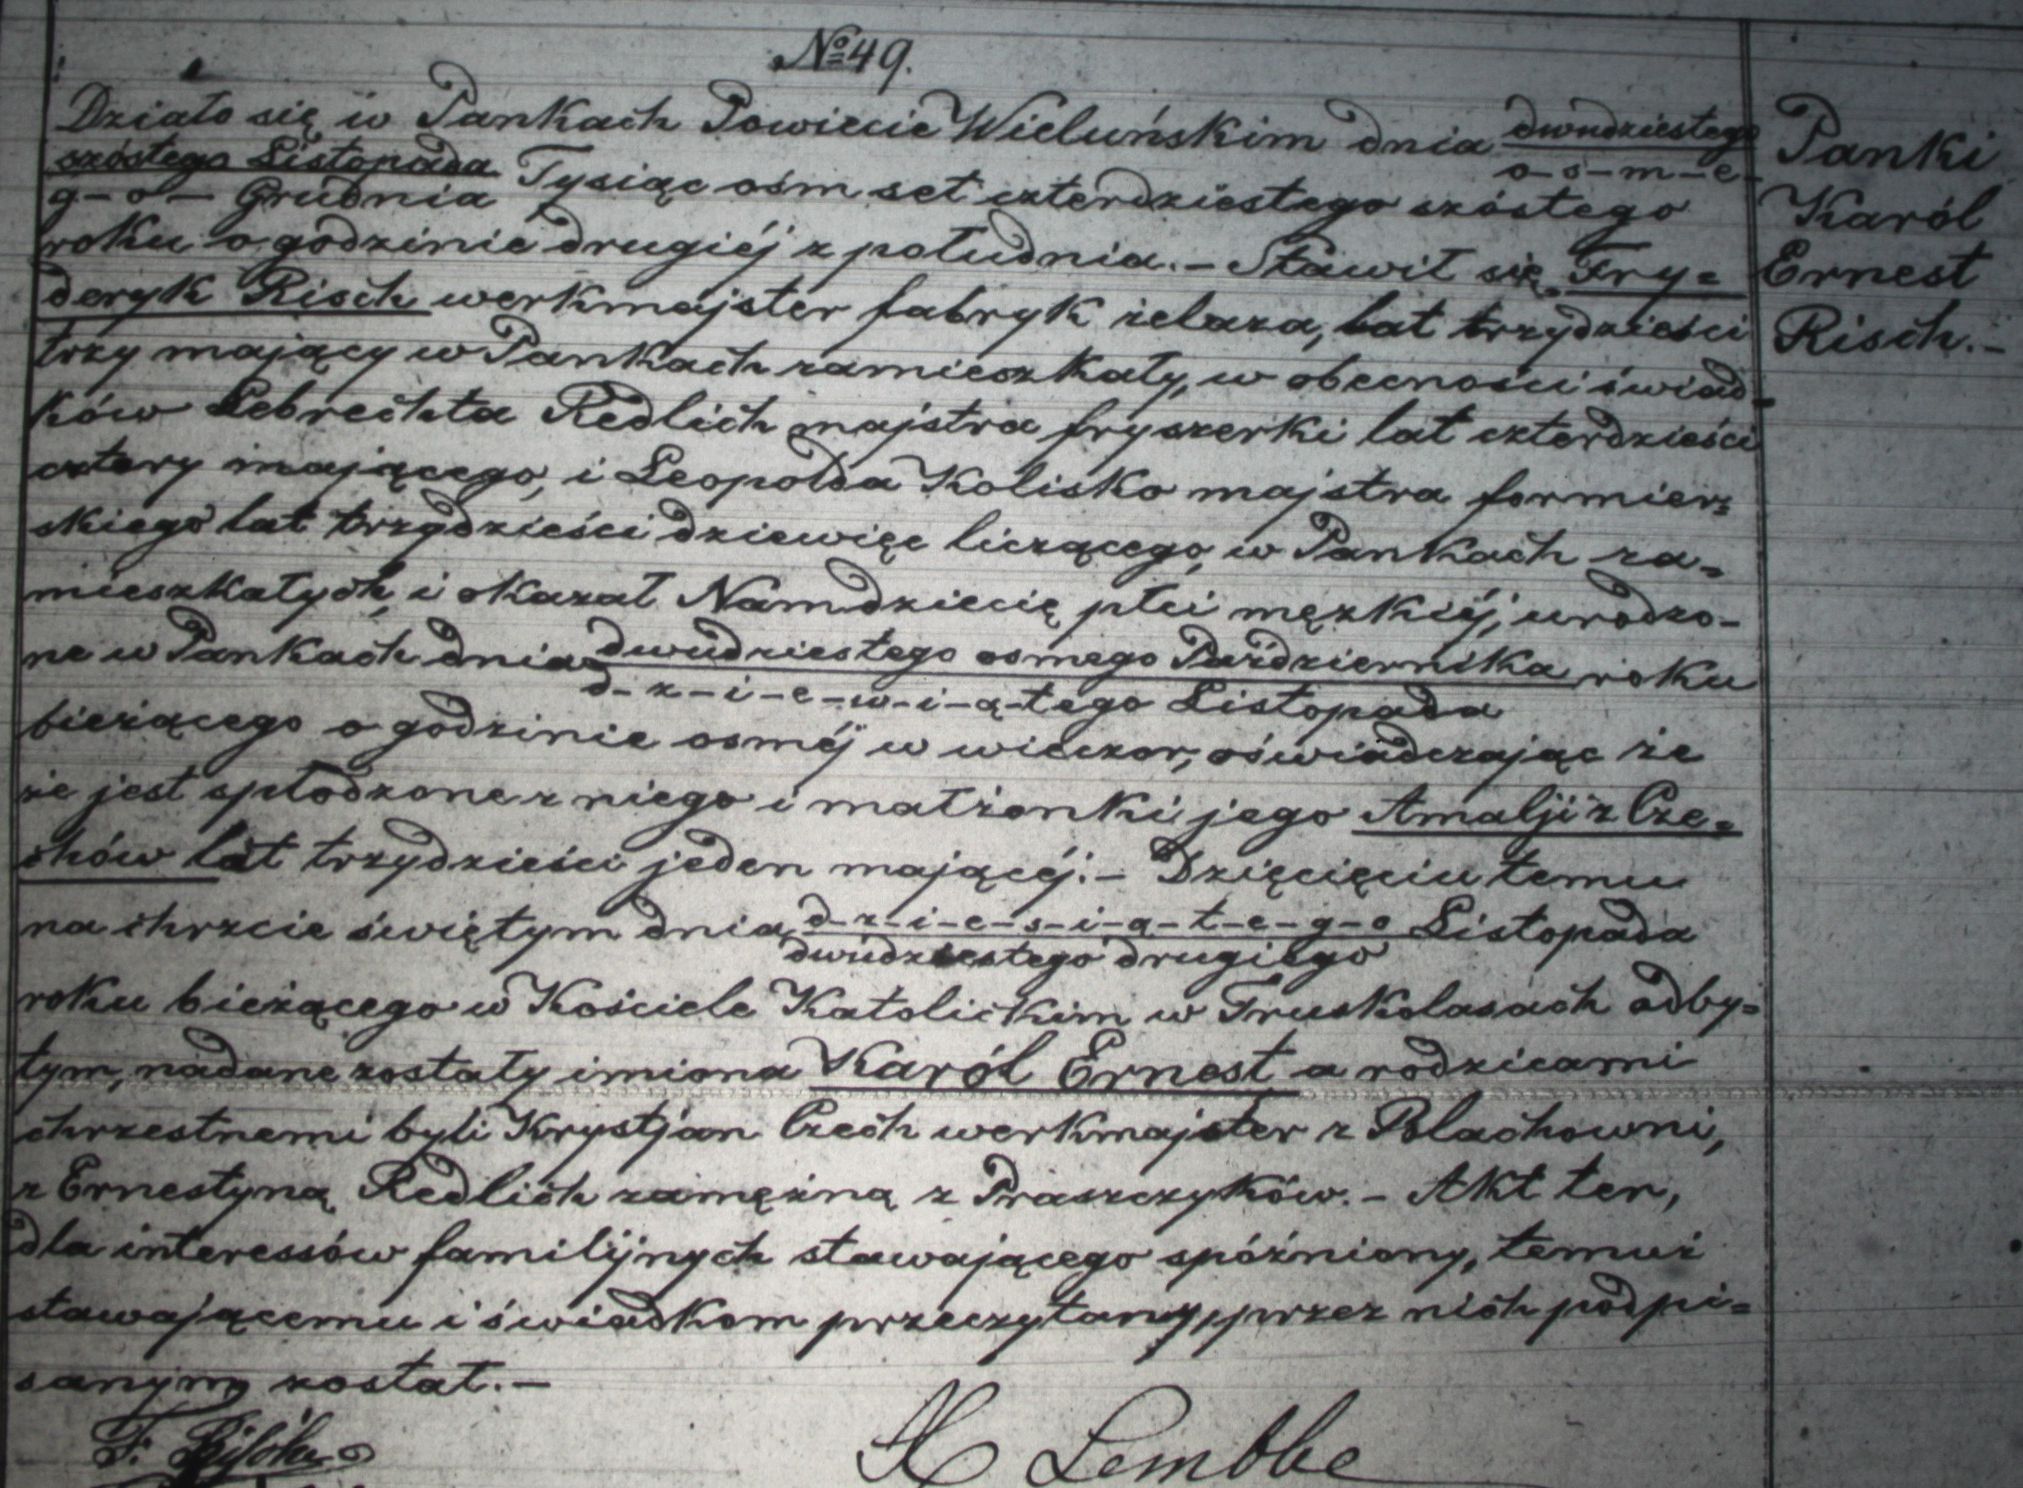 № 49.
Działo się w Pankach Powiecie Wieluńskim dnia dwudziestego
szóstego Listopada
o-s-m-e-
g-o- Grudnia Tysiąc ośm set czterdziestego szóstego
roku o godzinie drugiéj z południa.- Stawił się Fry=
deryk Risch werkmajster fabryk żelaza, lat trzydzieści
trzy mający w Pankach zamieszkały, w obecności świad=
ków Lebrechta Redlich majstra fryszerki lat czterdzieści
cztery mającego, i Leopolda Kolisko majstra formier=
skiego lat trzydzieści dziewięc liczącego, w Pankach za=
mieszkałych, i okazał Nam dziecię płci męzkiéj, urodzo-
ne w Pankach dnia dwudziestego osmego Października roku
d-z-i-e-w-i-ą-tego Listopada
bieżącego o godzinie osméj w wieczor, oświadczając że
że jest spłodzone z niego i małżonki jego Amalji z Cze=
chów lat trzydzieści jeden mającéj.- Dzięcięciu temu
na chrzcie świętym dnia d-z-i-e-s-i-ą-t-e-g-o Listopada
dwudziestego drugiego
roku bieżącego w Kościele Katolickim w Truskolasach odby=
tym, nadane zostały imiona Karól Ernest a rodzicami
chrzestnemi byli Krystjan Czech werkmajster z Blachowni,
z Ernestyną Redlich zamężną z Praszczyków.- Akt ten,
dla interessów familijnych stawającego spóźniony, temuż
stawającemu i świadkom przeczytany, przez nich podpi=
sanym został.-
F. Risch
H Lembke
Panki
Karól
Ernest
Risch.-